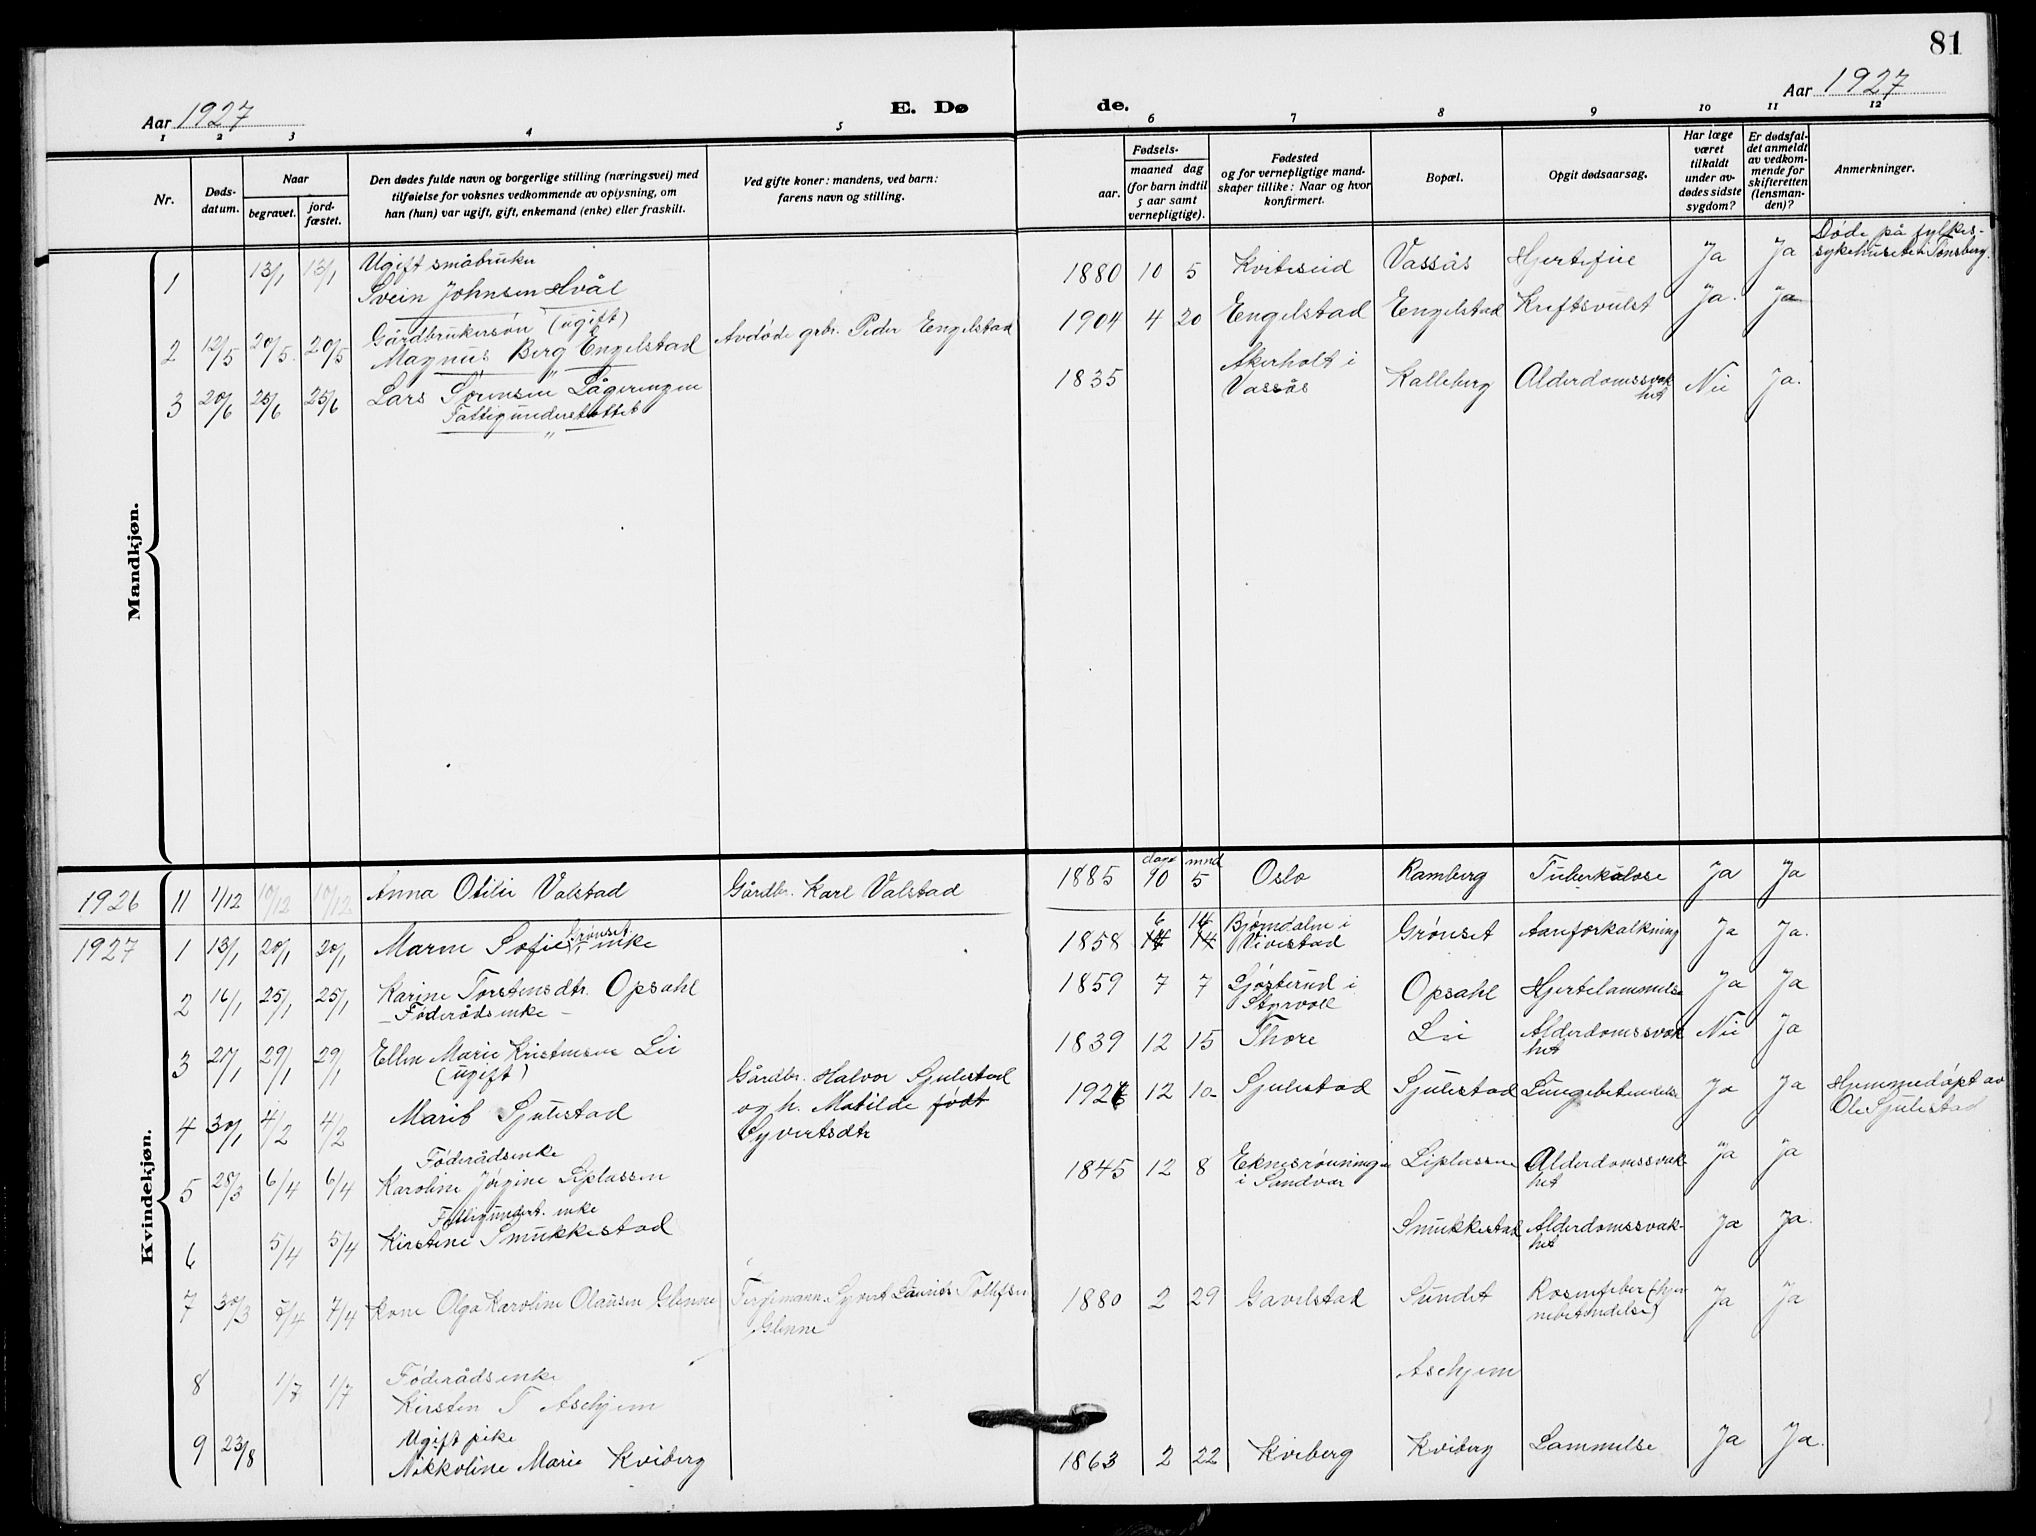 81
Aar 1927
E. Dø
de.
Aar 1927
1 2 3 4 5 6 7 8 9 10 11 12
Nr.
Døds-
datum.
Naar
begravet.
jord-
fæstet.
Den dødes fulde navn og borgerlige stilling (næringsvei) med
tilføielse for voksnes vedkommende av oplysning, om
han (hun) var ugift, gift, enkemand (enke) eller fraskilt.
Ved gifte koner: mandens, ved barn:
farens navn og stilling.
Fødsels-
aar.
maaned dag
(for barn indtil
5 aar samt
vernepligtige).
Fødested
og for vernepligtige mand-
skaper tillike: Naar og hvor
konfirmert.
Bopæl.
Opgit dødsaarsag.
Har læge
været
tilkaldt
under av-
dødes sidste
sygdom?
Er dødsfal-
det anmeldt
av vedkom-
mende for
skifteretten
(lensman-
den)?
Anmerkninger.
Mandkjøn.
1 13/1 13/1 Ugift småbruker
Svein Johnsen Hvål
1880 10 5 Kviteseid Vassås Hjertefeil Ja Ja Døde på fylkes-
sykehuset i Tønsberg.
2 12/5 20/5 20/5 Gårdbrukersøn (ugift)
Magnus Berg Engelstad Avdøde grbr. Peder Engelstad
1904 4 20 Engelstad Engelstad Kreftsvulst Ja. Ja
3 20/6 25/6 25/6 Lars Sørensen Lågeringen
Fattigunderstøttet
1835 Akerholt i
Vassås Kalleberg Alderdomssvak
het Nei Ja.
Kvindekjøn.
1926 11 1/12 10/12 10/12 Anna Otilie Valstad Gårdbr. Karl Valstad
1885 dag 10 mnd 5 Oslo Ramberg Tuberkulose Ja Ja
1927 1 13/1 20/1 20/1 Maren Sofie Grønset enke
1858 6 14 Bjørndalen i
Vivestad Grønset Aareforkalkning Ja Ja.
2 16/1 25/1 25/1 Karine Torstensdtr. Opsahl
- Føderådsenke -
1859 7 7 Gjøsterud i
Styrvoll Opsahl Hjertelammelse Ja Ja
3 21/1 29/1 29/1 Ellen Marie Kristensen Lie
(ugift)
1839 12 15 Thore Lie Alderdomssvak
het Nei Ja
4 30/1 4/2 4/2 Marit Sjulestad Gårdbr. Halvor Sjulestad
og h. Matilde født
Syvertsdtr
1926 12 10 Sjulestad Sjulestad Lungebetendelse Ja Ja Hjemmedøpt av
Ole Sjulestad
5 28/3 6/4 6/4 Føderådsenke
Karoline Jørgine Liplassen
1845 12 8 Eknesrønningen
i Sandvær Liplassen Alderdomssvak
het Ja Ja
6 5/4 5/4 Fattigunderst. enke
Kirstine Smukkestad
Smukkestad Alderdomssvak-
het Ja Ja.
7 30/3 7/4 7/4 Kone Olga Karoline Olausen Glenne Fergemann Syvert Laurits Tollefsen
Glenne
1880 2 29 Gavelstad Sundet Rosenfeber (hjer
nebetendelse) Ja Ja
8 1/7 1/7 Føderådsenke
Kirsten T Aschjem
Aschjem
9 23/8 Ugift pike
Nikkoline Marie Kviberg
1863 2 22 Kviberg Kviberg Lammelse Ja Ja.